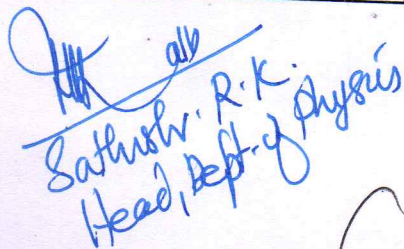 Sathish. R. K.
Head, Dept. of Physics